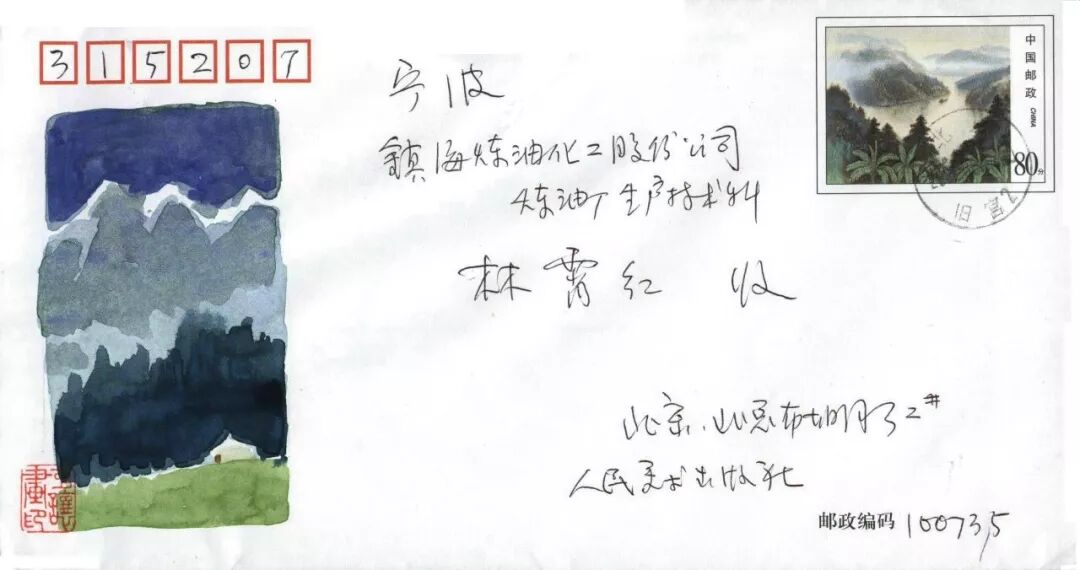 315207
中国邮政 CHINA
80分
旧宫2
宁波
鎮海炼油化工股份公司
炼油厂生产技术科
林霄红 收
北京.北总布胡同32#
人民美术出版社
邮政编码 100735